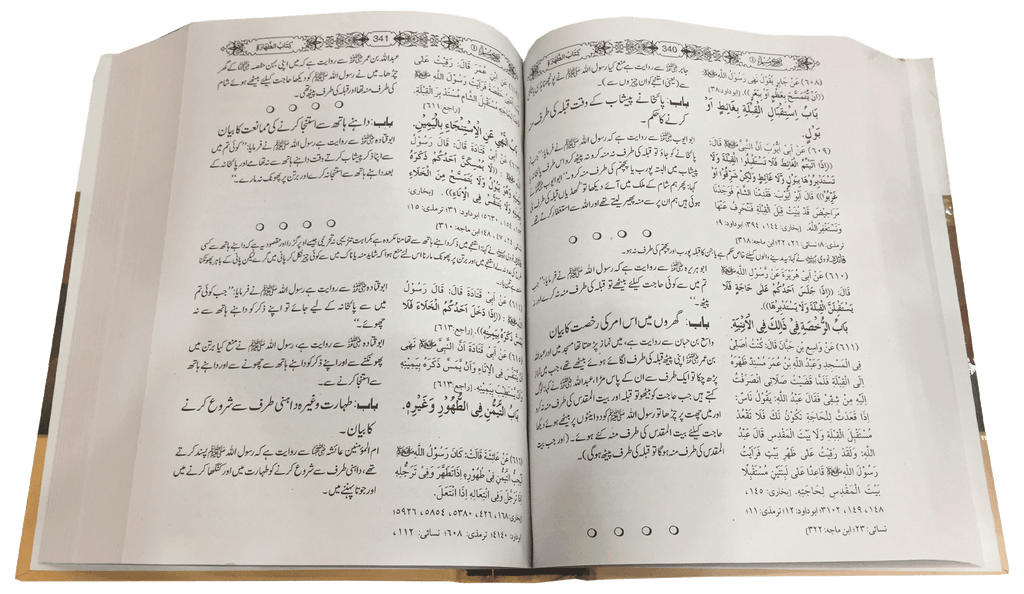 كتاب الطهارة
340
(٦٠٨) عَنْ جَابِرٍ يَقُولُ نَهَى رَسُولُ اللَّهِ ﷺ
((أَنْ يُتَمَسَّحَ بِعَظْمٍ أَوْ بِبَعْرٍ)). [ابوداود: ٣٨]
بَابُ اسْتِقْبَالِ الْقِبْلَةِ بِغَائِطٍ أَوْ
بَوْلٍ.
(٦٠٩) عَنْ أَبِي أَيُّوبَ أَنَّ النَّبِيَّ ﷺ قَالَ:
((إِذَا أَتَيْتُمُ الْغَائِطَ فَلَا تَسْتَقْبِلُوا الْقِبْلَةَ وَلَا
تَسْتَدْبِرُوهَا بِبَوْلٍ وَلَا غَائِطٍ وَلَكِنْ شَرِّقُوا أَوْ
غَرِّبُوا)) قَالَ أَبُو أَيُّوبَ: فَقَدِمْنَا الشَّامَ فَوَجَدْنَا
مَرَاحِيضَ قَدْ بُنِيَتْ قِبَلَ الْقِبْلَةِ فَنَنْحَرِفُ عَنْهَا
وَنَسْتَغْفِرُ اللَّهَ. [بخاری: ١٤٤، ٣٩٤؛ ابوداود: ٩؛
ترمذی: ٨؛ نسائی: ٢١، ٢٢؛ ابن ماجه: ٣١٨]
(٦١٠) عَنْ أَبِي هُرَيْرَةَ عَنْ رَسُولِ اللَّهِ ﷺ
قَالَ: ((إِذَا جَلَسَ أَحَدُكُمْ عَلَى حَاجَتِهِ فَلَا
يَسْتَقْبِلَنَّ الْقِبْلَةَ وَلَا يَسْتَدْبِرْهَا)).
بَابُ الرُّخْصَةِ فِي ذَلِكَ فِي الْأَبْنِيَةِ.
(٦١١) عَنْ وَاسِعِ بْنِ حَبَّانَ قَالَ: كُنْتُ أُصَلِّي
فِي الْمَسْجِدِ وَعَبْدُ اللَّهِ بْنُ عُمَرَ مُسْنِدٌ ظَهْرَهُ
إِلَى الْقِبْلَةِ فَلَمَّا قَضَيْتُ صَلَاتِي انْصَرَفْتُ
إِلَيْهِ مِنْ شِقِّي فَقَالَ عَبْدُ اللَّهِ: يَقُولُ نَاسٌ:
إِذَا قَعَدْتَ لِلْحَاجَةِ تَكُونُ لَكَ فَلَا تَقْعُدْ
مُسْتَقْبِلَ الْقِبْلَةِ وَلَا بَيْتِ الْمَقْدِسِ قَالَ عَبْدُ
اللَّهِ: وَلَقَدْ رَقِيتُ عَلَى ظَهْرِ بَيْتٍ فَرَأَيْتُ
رَسُولَ اللَّهِ ﷺ قَاعِدًا عَلَى لَبِنَتَيْنِ مُسْتَقْبِلًا
بَيْتَ الْمَقْدِسِ لِحَاجَتِهِ. [بخاری: ١٤٥،
١٤٨، ١٤٩، ٣١٠٢؛ ابوداود: ١٢؛ ترمذی: ١١؛
نسائی: ٢٣؛ ابن ماجه: ٣٢٢]
جابر ؓ سے روایت ہے منع کیا رسول اللہ ﷺ نے
سے (یعنی استنجے کو ان چیزوں سے)۔
باب: پائخانے پیشاب کے وقت قبلہ کی طرف منہ
کرنے کا حکم۔
ابو ایوب ؓ سے روایت ہے رسول اللہ ﷺ نے فرمایا: ’’جب تم
پائخانے کو جاؤ تو قبلہ کی طرف نہ منہ کرو نہ پیٹھ کرو اس طرف
پیشاب میں البتہ پورب یا پچھم کی طرف منہ کرو۔‘‘ ابو ایوب
کہا: پھر ہم شام کے ملک میں آئے دیکھا تو کھڈیاں قبلہ کی طرف
ہوئی ہیں ہم ان پر سے منہ پھیر لیتے تھے اور اللہ سے استغفار کرتے تھے
ابو ہریرہ ؓ سے روایت ہے کہ رسول اللہ ﷺ نے فرمایا: ’’جب
تم میں سے کوئی حاجت کیلئے بیٹھے تو قبلہ کی طرف منہ نہ کرے نہ
پیٹھ۔‘‘
باب: گھروں میں اس امر کی رخصت کا بیان
واسع بن حبان سے روایت ہے، میں نماز پڑھتا تھا مسجد میں اور عبداللہ
بن عمر ؓ اپنی پیٹھ قبلہ کی طرف لگائے ہوئے بیٹھے تھے، جب میں نماز
پڑھ چکا تو ایک طرف سے ان کے پاس مڑا، عبداللہ نے کہا: لوگ
کہتے ہیں جب حاجت کو بیٹھو تو قبلہ اور بیت المقدس کی طرف منہ نہ کرو
اور میں چھت پر چڑھا تو رسول اللہ ﷺ کو دو اینٹوں پر بیٹھے ہوئے دیکھا
حاجت کیلئے بیت المقدس کی طرف منہ کئے ہوئے۔ (اور جب بیت
المقدس کی طرف منہ ہوگا تو قبلہ کی طرف پیٹھ ہوگی)۔
كتاب الطهارة
341
ابْنِ عُمَرَ قَالَ: رَقِيتُ عَلَى
حَفْصَةَ فَرَأَيْتُ رَسُولَ اللَّهِ ﷺ
مُسْتَقْبِلَ الشَّامِ مُسْتَدْبِرَ الْقِبْلَةِ.
[راجع: ٦١١]
بَابُ النَّهْيِ عَنِ الِاسْتِنْجَاءِ بِالْيَمِينِ.
عَنْ أَبِي قَتَادَةَ قَالَ: قَالَ رَسُولُ
اللَّهِ ﷺ: ((لَا يُمْسِكَنَّ أَحَدُكُمْ ذَكَرَهُ
وَهُوَ يَبُولُ وَلَا يَتَمَسَّحْ مِنَ الْخَلَاءِ
وَلَا يَتَنَفَّسْ فِي الْإِنَاءِ)). [بخاری:
٥٦٣٠؛ ابوداود: ٣١؛ ترمذی: ١٥؛
نسائی: ٢٤، ٤٧، ٤٨؛ ابن ماجه: ٣١٠]
عَنْ أَبِي قَتَادَةَ قَالَ: قَالَ رَسُولُ
اللَّهِ ﷺ: ((إِذَا دَخَلَ أَحَدُكُمُ الْخَلَاءَ فَلَا
يَمَسَّ ذَكَرَهُ بِيَمِينِهِ)). [راجع: ٦١٣]
(٦١٥) عَنْ أَبِي قَتَادَةَ أَنَّ النَّبِيَّ ﷺ نَهَى
أَنْ يَتَنَفَّسَ فِي الْإِنَاءِ وَأَنْ يَمَسَّ ذَكَرَهُ بِيَمِينِهِ
وَأَنْ يَسْتَطِيبَ بِيَمِينِهِ. [راجع: ٦١٣]
بَابُ التَّيَمُّنِ فِي الطُّهُورِ وَغَيْرِهِ.
(٦١٦) عَنْ عَائِشَةَ قَالَتْ: كَانَ رَسُولُ اللَّهِ ﷺ
لَيُحِبُّ التَّيَمُّنَ فِي طُهُورِهِ إِذَا تَطَهَّرَ وَفِي تَرَجُّلِهِ
إِذَا تَرَجَّلَ وَفِي انْتِعَالِهِ إِذَا انْتَعَلَ.
[بخاری: ١٦٨، ٤٢٦، ٥٣٨٠، ٥٨٥٤، ٥٩٢٦؛
ابوداود: ٤١٤٠؛ ترمذی: ٦٠٨؛ نسائی: ١١٢،
عبداللہ بن عمر ؓ سے روایت ہے کہ میں اپنی بہن حفصہ ؓ کے گھر
چڑھا۔ میں نے رسول اللہ ﷺ کو دیکھا حاجت کیلئے بیٹھے ہوئے شام
کی طرف منہ تھا اور قبلہ کی طرف پیٹھ تھی۔
باب: داہنے ہاتھ سے استنجا کرنے کی ممانعت کا بیان
ابو قتادہ ؓ سے روایت ہے، رسول اللہ ﷺ نے فرمایا: ’’کوئی تم میں
سے اپنا ذکر پیشاب کرتے وقت داہنے ہاتھ سے نہ تھامے اور پائخانہ کے
بعد داہنے ہاتھ سے استنجا نہ کرے اور برتن میں پھونک نہ مارے۔‘‘
ابو قتادہ ؓ سے روایت ہے، رسول اللہ ﷺ نے فرمایا: ’’جب کوئی تم
میں سے پائخانہ کے لیے جائے تو اپنے ذکر کو داہنے ہاتھ سے نہ
چھوئے۔‘‘
ابو قتادہ ؓ سے روایت ہے، رسول اللہ ﷺ نے منع کیا برتن میں
پھونکنے سے اور اپنے ذکر کو داہنے ہاتھ سے چھونے سے اور داہنے ہاتھ
سے استنجا کرنے سے۔
باب: طہارت وغیرہ داہنی طرف سے شروع کرنے
کا بیان۔
ام المؤمنین عائشہ ؓ سے روایت ہے کہ رسول اللہ ﷺ پسند کرتے
تھے، داہنی طرف سے شروع کرنے کو طہارت میں اور کنگھا کرنے میں
اور جوتا پہننے میں۔